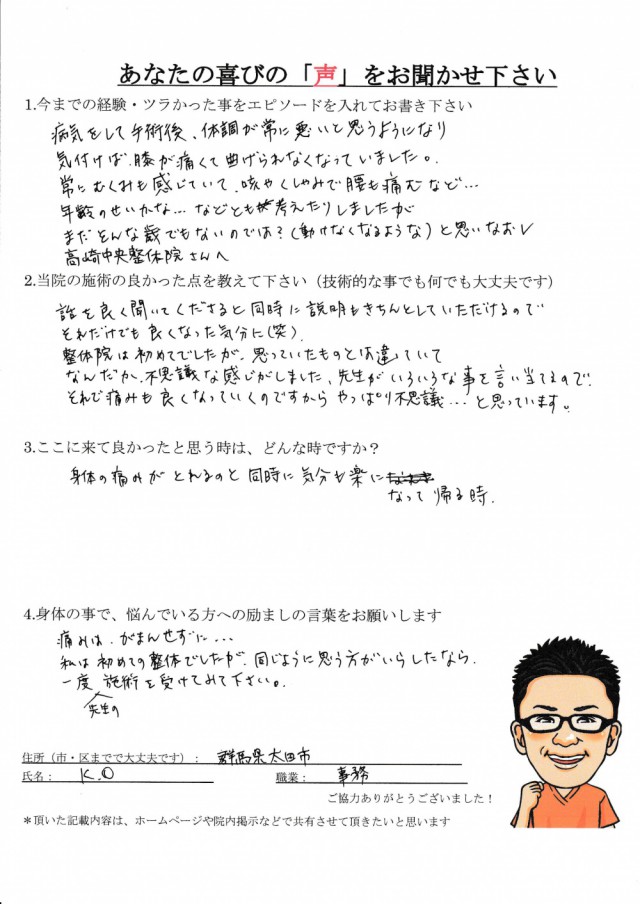 あなたの喜びの「声」をお聞かせ下さい
1.今までの経験・ツラかった事をエピソードを入れてお書き下さい
病気をして手術後、体調が常に悪いと思うようになり
気付けば、膝が痛くて曲げられなくなっていました。
常にむくみも感じていて、咳やくしゃみで腰も痛むなど…
年齢のせいかな… などとも考えたりしましたが
まだそんな歳でもないのでは?(動けなくなるような)と思いなおし
高崎中央整体院さんへ
2.当院の施術の良かった点を教えて下さい（技術的な事でも何でも大丈夫です）
話を良く聞いてくださると同時に説明もきちんとしていただけるので
それだけでも良くなった気分に(笑)
整体院は初めてでしたが、思っていたものとは違っていて
なんだか、不思議な感じがしました、先生がいろいろな事を言い当てるので
それで痛みも良くなっていくのですから やっぱり不思議… と思っています。
3.ここに来て良かったと思う時は、どんな時ですか？
身体の痛みがとれるのと同時に気分も楽に
なって帰る時.
4.身体の事で、悩んでいる方への励ましの言葉をお願いします
痛みは、がまんせずに…
私は初めての整体でしたが、同じように思う方がいらしたなら、
一度 先生の施術を受けてみて下さい。
住所（市・区までで大丈夫です）： 群馬県太田市
氏名： K.O 職業： 事務
ご協力ありがとうございました！
＊頂いた記載内容は、ホームページや院内掲示などで共有させて頂きたいと思います